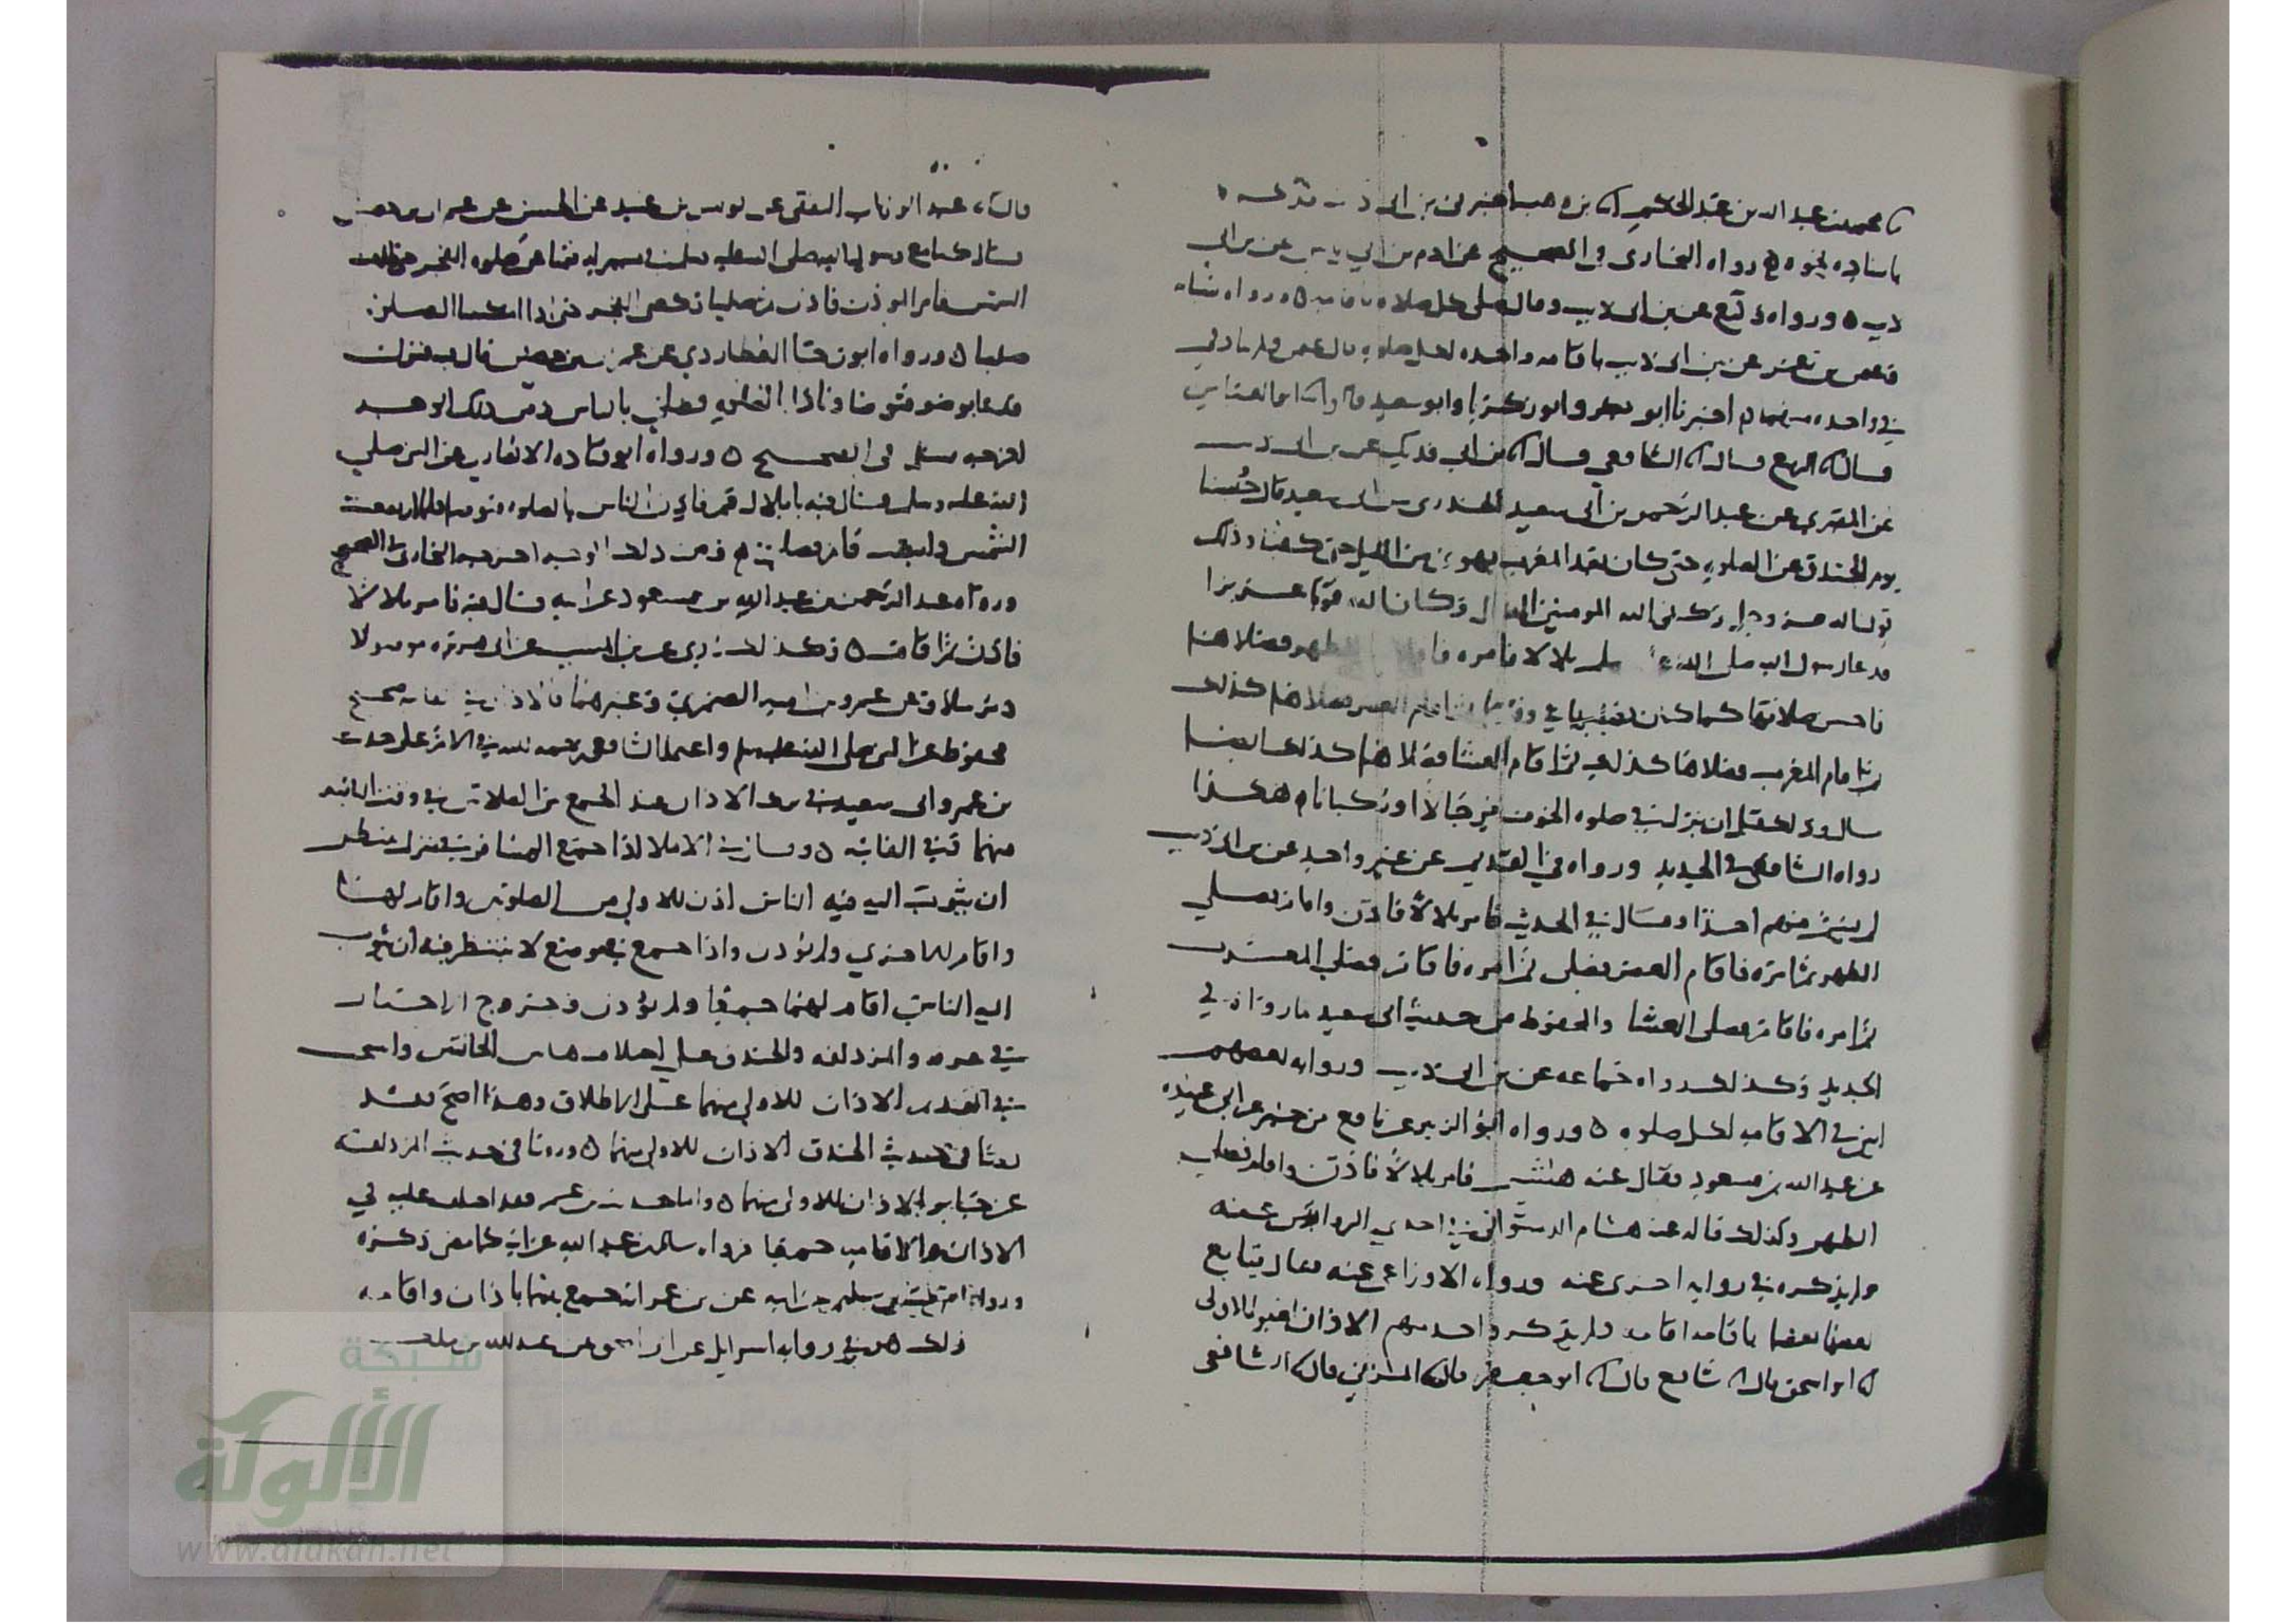 محمد بن عبد الله بن عبد الحكم بن وهب اخبرني بن ابي
باسناده نحوه رواه البخاري في الصحيح عن ادم بن ابي اياس عن بن ابي
ذيب ورواه عن بن ابي ذيب وقال صلى كل صلاه باقامه ورواه شبابه
وعثمن بن عمر عن بن ابي ذيب باقامه واحده لكل صلوه قال عثمن ولم يناد في
في واحده منهما اخبرنا ابو بكر وابو زكريا وابو سعيد قالوا ابو العباس
قال الربيع قال الشافعي قال بن ابي فديك عن بن ابي ذيب
عن المقبري عن عبد الرحمن بن ابي سعيد الخدري عن ابي سعيد قال حبسنا
يوم الخندق عن الصلوه حتى كان بعد المغرب بهوي من الليل حتى كفينا وذلك
قول الله عز وجل وكفى الله المومنين القتال وكان الله قويا عزيزا
فدعا رسول الله صلى الله بلالا فامره فاقام الظهر فصلاها
فاحسن صلاتها كما كان يصليها في وقتها ثم اقام العصر فصلاها كذلك
ثم اقام المغرب فصلاها كذلك ثم اقام العشا فصلاها كذلك ايضا
قال وذلك قبل ان ينزل في صلوه الخوف فرجالا او ركبانا هكذا
رواه الشافعي في الجديد ورواه في القديم عن غير واحد عن بن ابي ذيب
لم يسم منهم احدا وقال في الحديث فامر بلالا فاذن واقام فصلى
الظهر ثم امره فاقام العصر فصلى ثم امره فاقام فصلى المغرب
ثم امره فاقام فصلى العشا والمحفوظ من حديث ابي سعيد ما رواه في
الجديد وكذلك رواه جماعه عن بن ابي ذيب ورواية بعضهم
في الاقامه لكل صلوه ورواه ابو الزبير عن نافع بن جبير عن ابي عبيده
عن عبد الله بن مسعود فقال عنه هشيم فامر بلالا فاذن واقام فصلى
الظهر وكذلك قاله عنه هشام الدستوائي في احدي الروايتين عنه
ولم يذكره في روايه اخرى عنه ورواه الاوزاعي عنه فقال يتابع
بعضها بعضا باقامه اقامه ولم يذكر واحد منهم الاذان لغير الاولى
ابو اسحق قال شافع قال ابو جعفر قال المزني قال الشافعي
قال عبد الوهاب الثقفي عن يونس بن عبيد عن الحسن عن عمران بن حصين
قال كنا مع رسول الله صلى الله عليه وسلم في مسير له فنمنا عن صلوه الفجر حتى طلعت
الشمس فامر الموذن فاذن ثم صلينا ركعتي الفجر حتى اذا امكنتنا الصلوه
صلينا ورواه ابو رجا العطاردي عن عمران بن حصين قال فيه فنزل
فدعا بوضو فتوضا ونادا بالصلوه وصلى بالناس ومن ذلك الوجه
اخرجه مسلم في الصحيح ورواه ابو قتاده الانصاري عن النبي صلى
الله عليه وسلم فقال فيه يا بلال قم فاذن الناس بالصلوه فتوضا فلما ارتفعت
الشمس وابيضت قام فصلى ومن ذلك الوجه اخرجه البخاري في الصحيح
ورواه عبد الرحمن بن عبد الله بن مسعود عن ابيه وقال فيه فامر بلالا
فاذن ثم اقام وكذلك روي عن بن المسيب عن ابي هريره موصولا
ومرسلا وعن عمرو بن اميه الضمري وغيرهما فالاذان في الفايته صحيح
محفوظ عن النبي صلى الله عليه وسلم واعتمد الشافعي رحمه الله في الام على حديث
بن عمر وابي سعيد في ترك الاذان عند الجمع بين الصلاتين في وقت الثانيه
منهما وفي الفايته وقال في الاملا اذا جمع المسافر في منزل ينتظر
ان يثوب اليه فيه الناس اذن للاولى من الصلوتين واقام لها
واقام للاخرى ولم يوذن واذا جمع في موضع لا ينتظر فيه ان يثوب
اليه الناس اقام لهما جميعا ولم يوذن وخروج الاخبار
في عرفه والمزدلفه والخندق على اختلاف هاتين الحالتين واستحب
في القديم الاذان للاولى منهما على الاطلاق وهذا اصح فقد
روينا في حديث الخندق الاذان للاولى منهما وروينا في حديث المزدلفه
عن جابر الاذان للاولى منهما واما حديث بن عمر فقد اختلف عليه في
الاذان والاقامه جميعا فرواه سالم بن عبد الله عن ابيه كما مضى ذكره
ورواه اشعث بن سليم عن ابيه عن بن عمر انه جمع بينهما باذان واقامه
وكذلك هو في روايه اسرايل عن ابي اسحق عن عبد الله بن ملك
شبكة
الألوكة
www.alukah.net